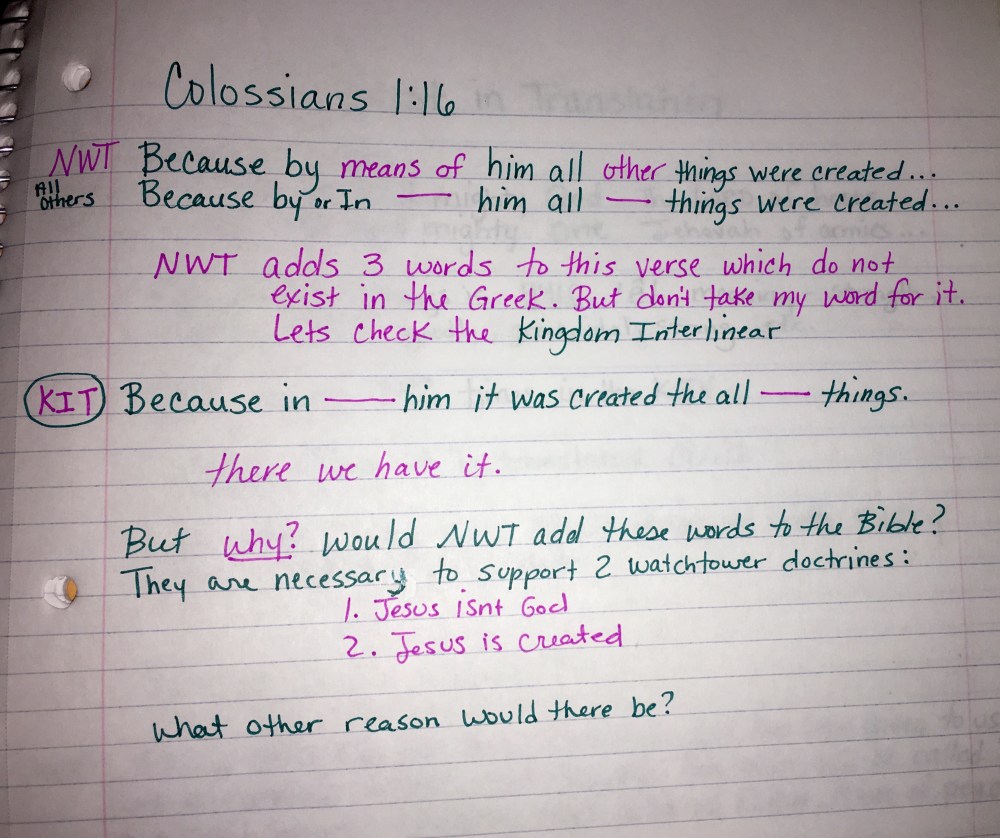 Colossians 1:16
NWT Because by means of him all other things were created...
All Others Because by or In — him all — things were created...
NWT adds 3 words to this verse which do not
exist in the Greek. But don't take my word for it.
Lets check the Kingdom Interlinear
KIT Because in — him it was created the all — things.
there we have it.
But why? would NWT add these words to the Bible?
They are necessary to support 2 watchtower doctrines:
1. Jesus isnt God
2. Jesus is created
What other reason would there be?